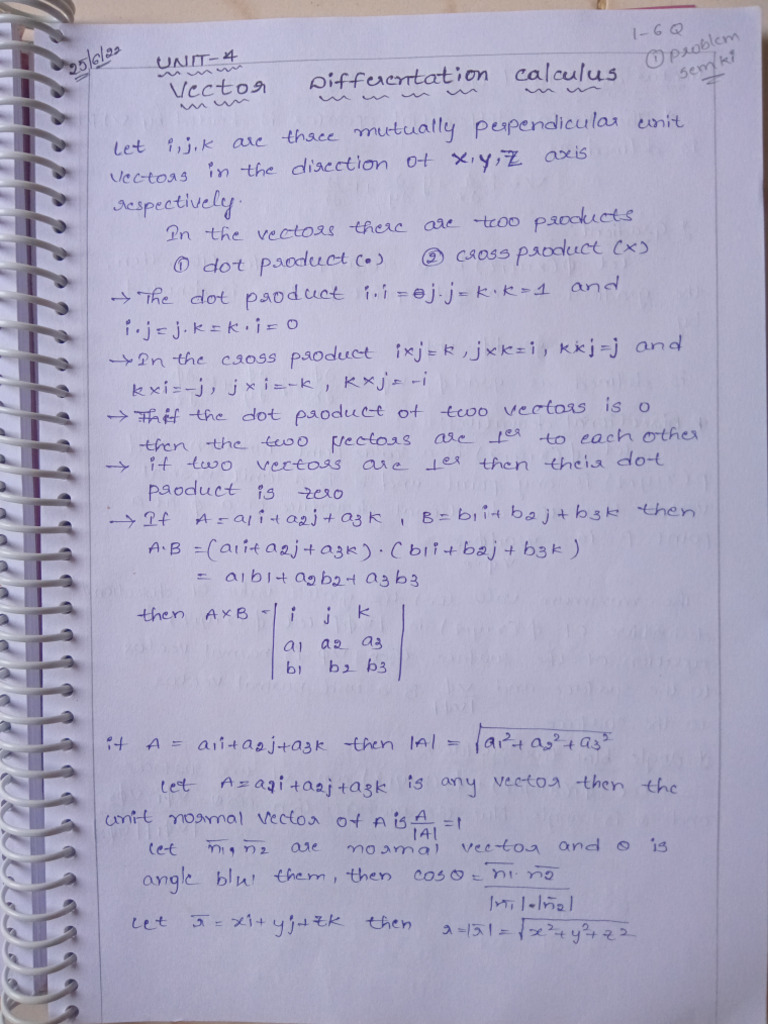 25/6/22
UNIT-4
1-6 Q
① problem
sem ki
Vector Differentation calculus
Let i,j,k are three mutually perpendicular unit
vectors in the direction of x,y,z axis
respectively.
In the vectors there are two products
① dot product (•) ② cross product (x)
→ The dot product i.i = j.j = k.k = 1 and
i.j = j.k = k.i = 0
→ In the cross product ixj = k, jxk = i, kxj = j and
kxi = -j, jxi = -k, kxj = -i
→ If the dot product of two vectors is 0
then the two vectors are ⊥er to each other
→ if two vectors are ⊥er then their dot
product is zero
→ If A = a1i + a2j + a3k, B = b1i + b2j + b3k then
A.B = (a1i + a2j + a3k) . (b1i + b2j + b3k)
= a1b1 + a2b2 + a3b3
then AxB = | i j k |
| a1 a2 a3 |
| b1 b2 b3 |
if A = a1i + a2j + a3k then |A| = √a1² + a2² + a3²
Let A = a1i + a2j + a3k is any vector then the
unit normal vector of A is A/|A| = 1
Let n̅1, n̅2 are normal vector and θ is
angle b/w them, then cosθ = n̅1 . n̅2 / |n̅1| . |n̅2|
Let r̅ = xi + yj + zk then r = |r̅| = √x² + y² + z²